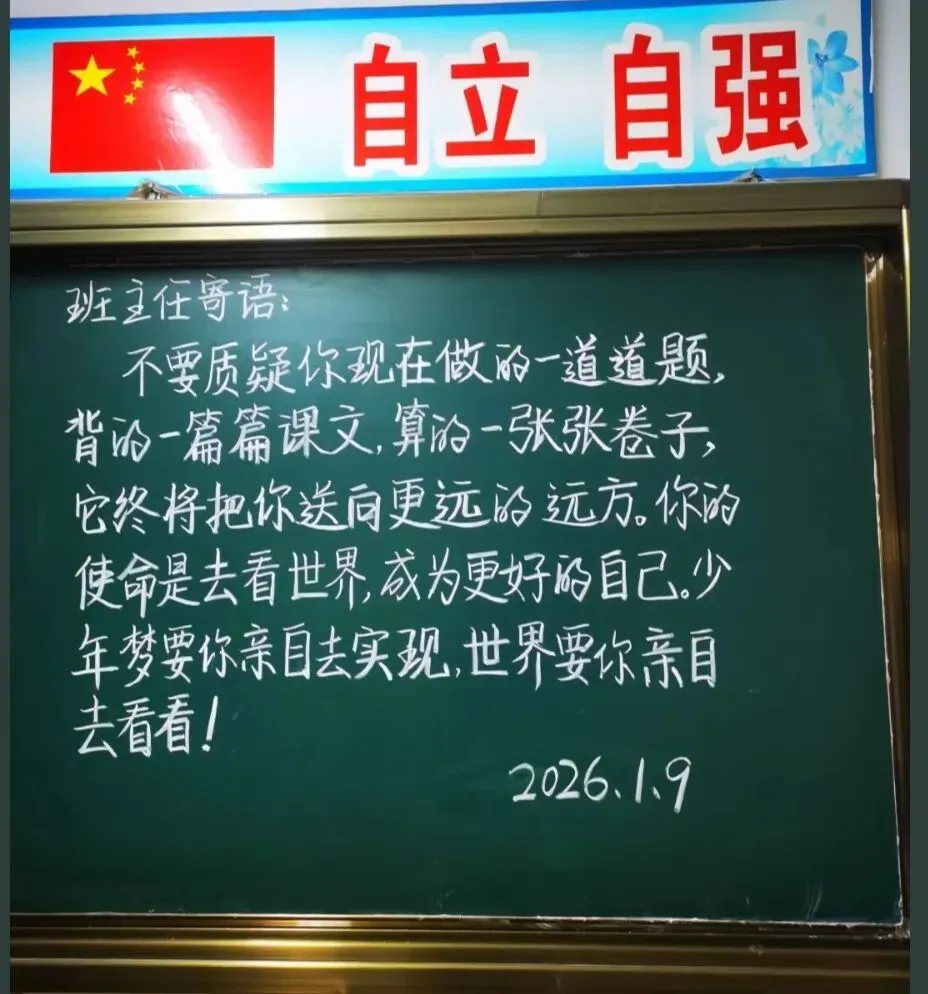 自立 自强
班主任寄语:
不要质疑你现在做的一道道题,
背的一篇篇课文,算的一张张卷子,
它终将把你送向更远的远方。你的
使命是去看世界,成为更好的自己。少
年梦要你亲自去实现,世界要你亲自
去看看!
2026.1.9